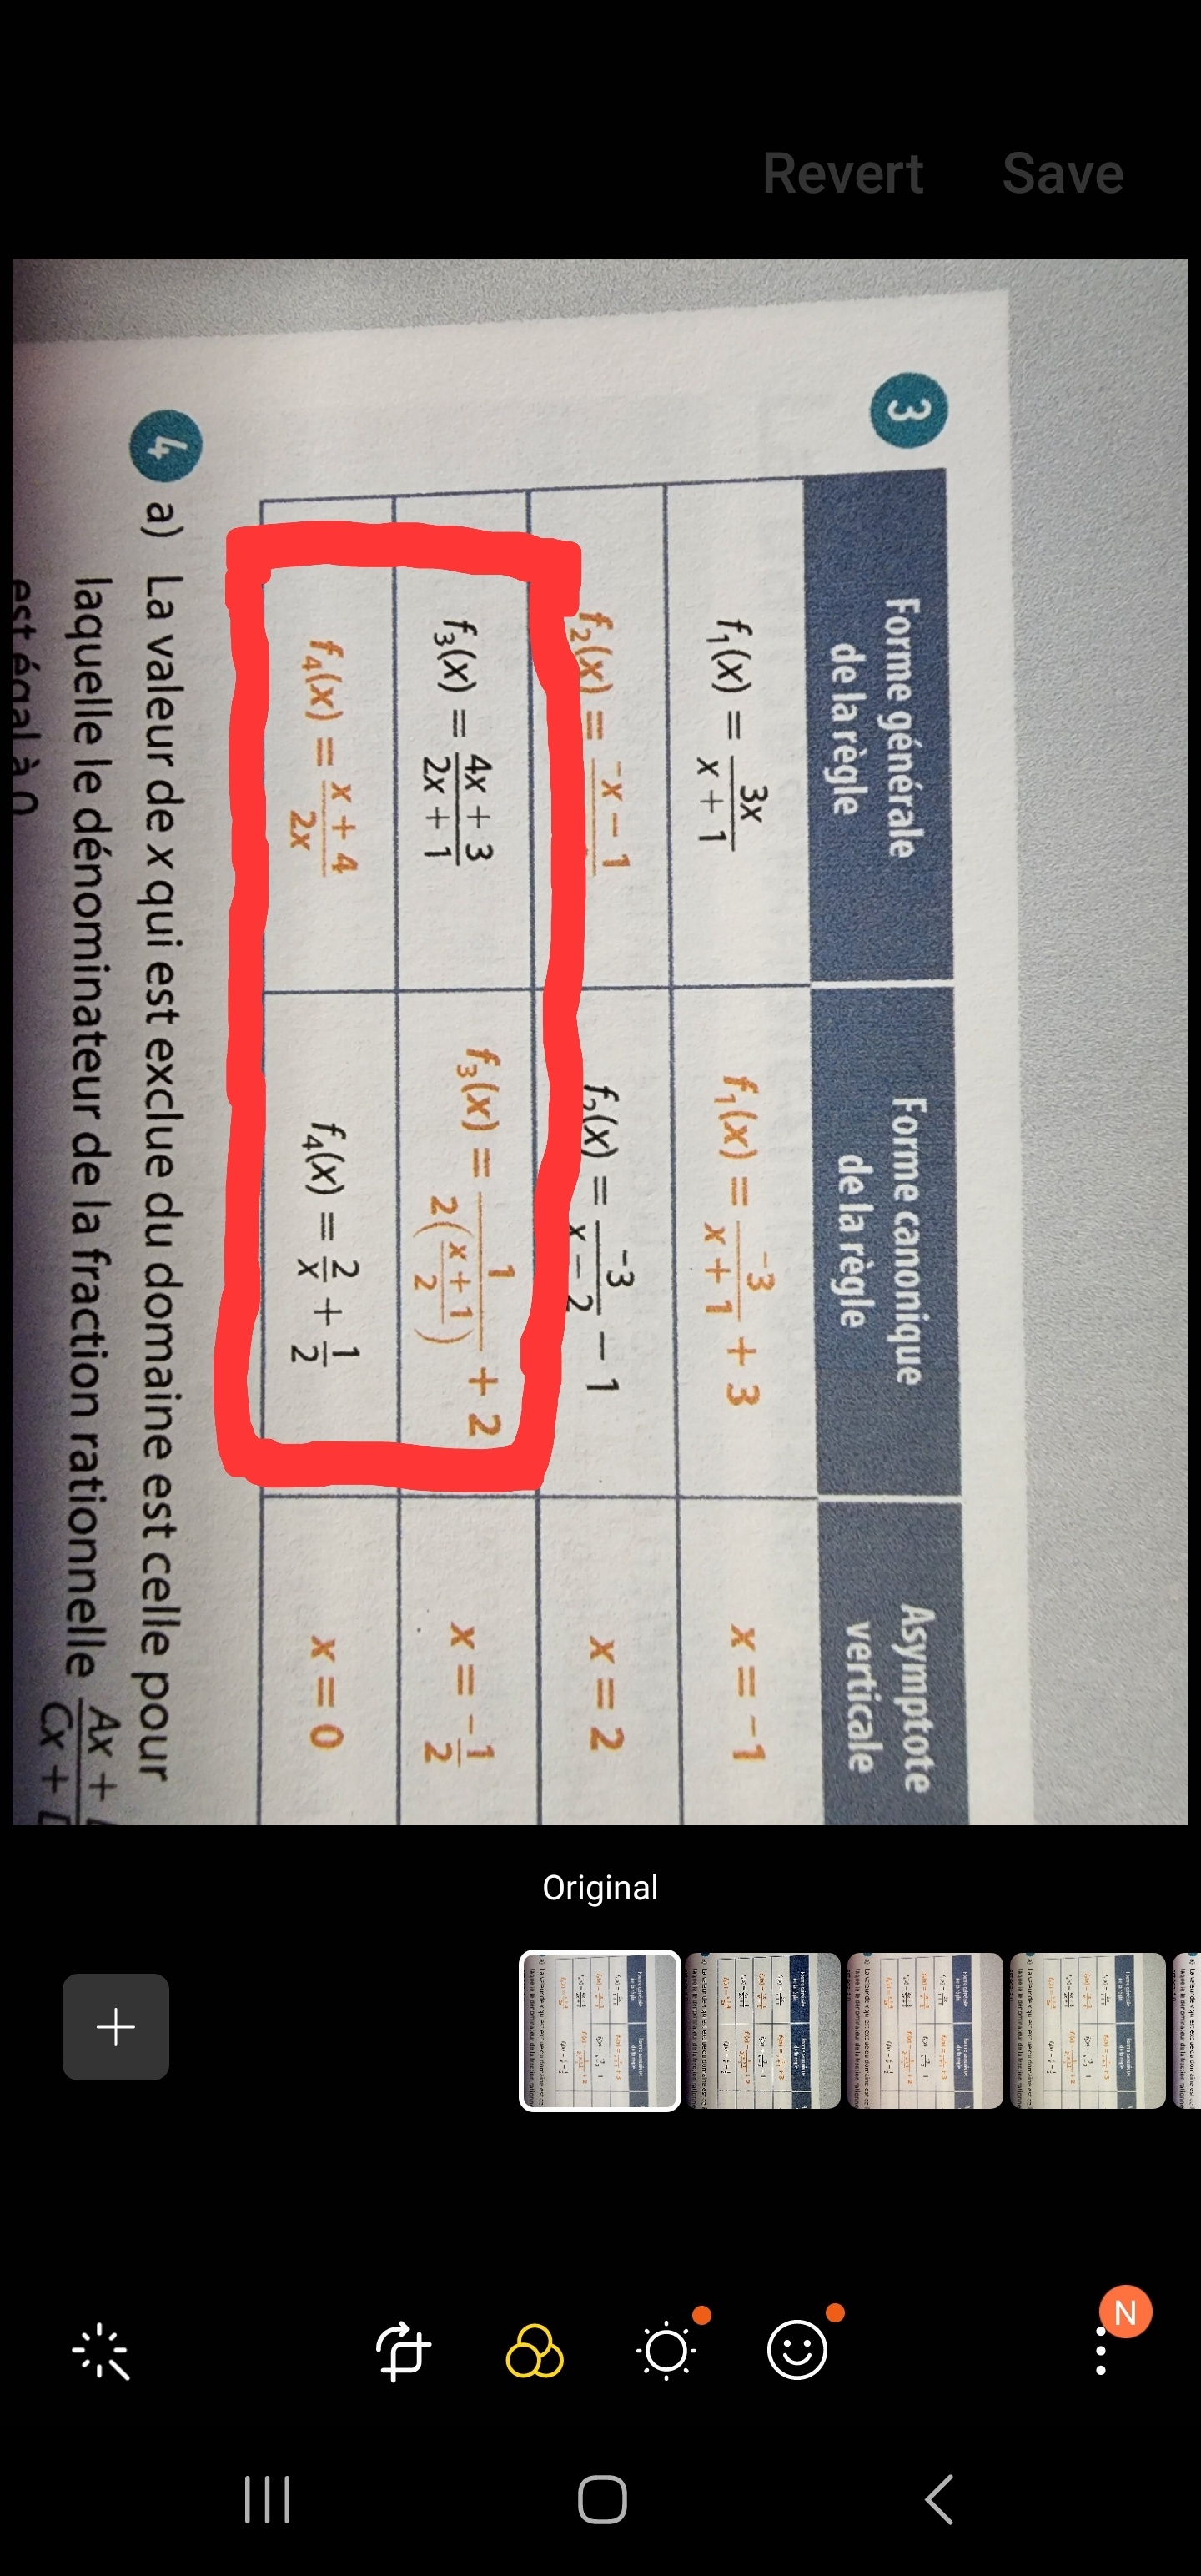 Revert Save
3
Forme générale de la règle | Forme canonique de la règle | Asymptote verticale
f₁(x) = 3x/(x + 1) | f₁(x) = ⁻3/(x + 1) + 3 | x = ⁻1
f₂(x) = (⁻x − 1)/ | f₂(x) = ⁻3/(x − 2) − 1 | x = 2
f₃(x) = (4x + 3)/(2x + 1) | f₃(x) = 1/(2((x + 1)/2)) + 2 | x = ⁻1/2
f₄(x) = (x + 4)/(2x) | f₄(x) = 2/x + 1/2 | x = 0
4 a) La valeur de x qui est exclue du domaine est celle pour
laquelle le dénominateur de la fraction rationnelle (Ax +)/(Cx +)
est égal à 0
Original
N